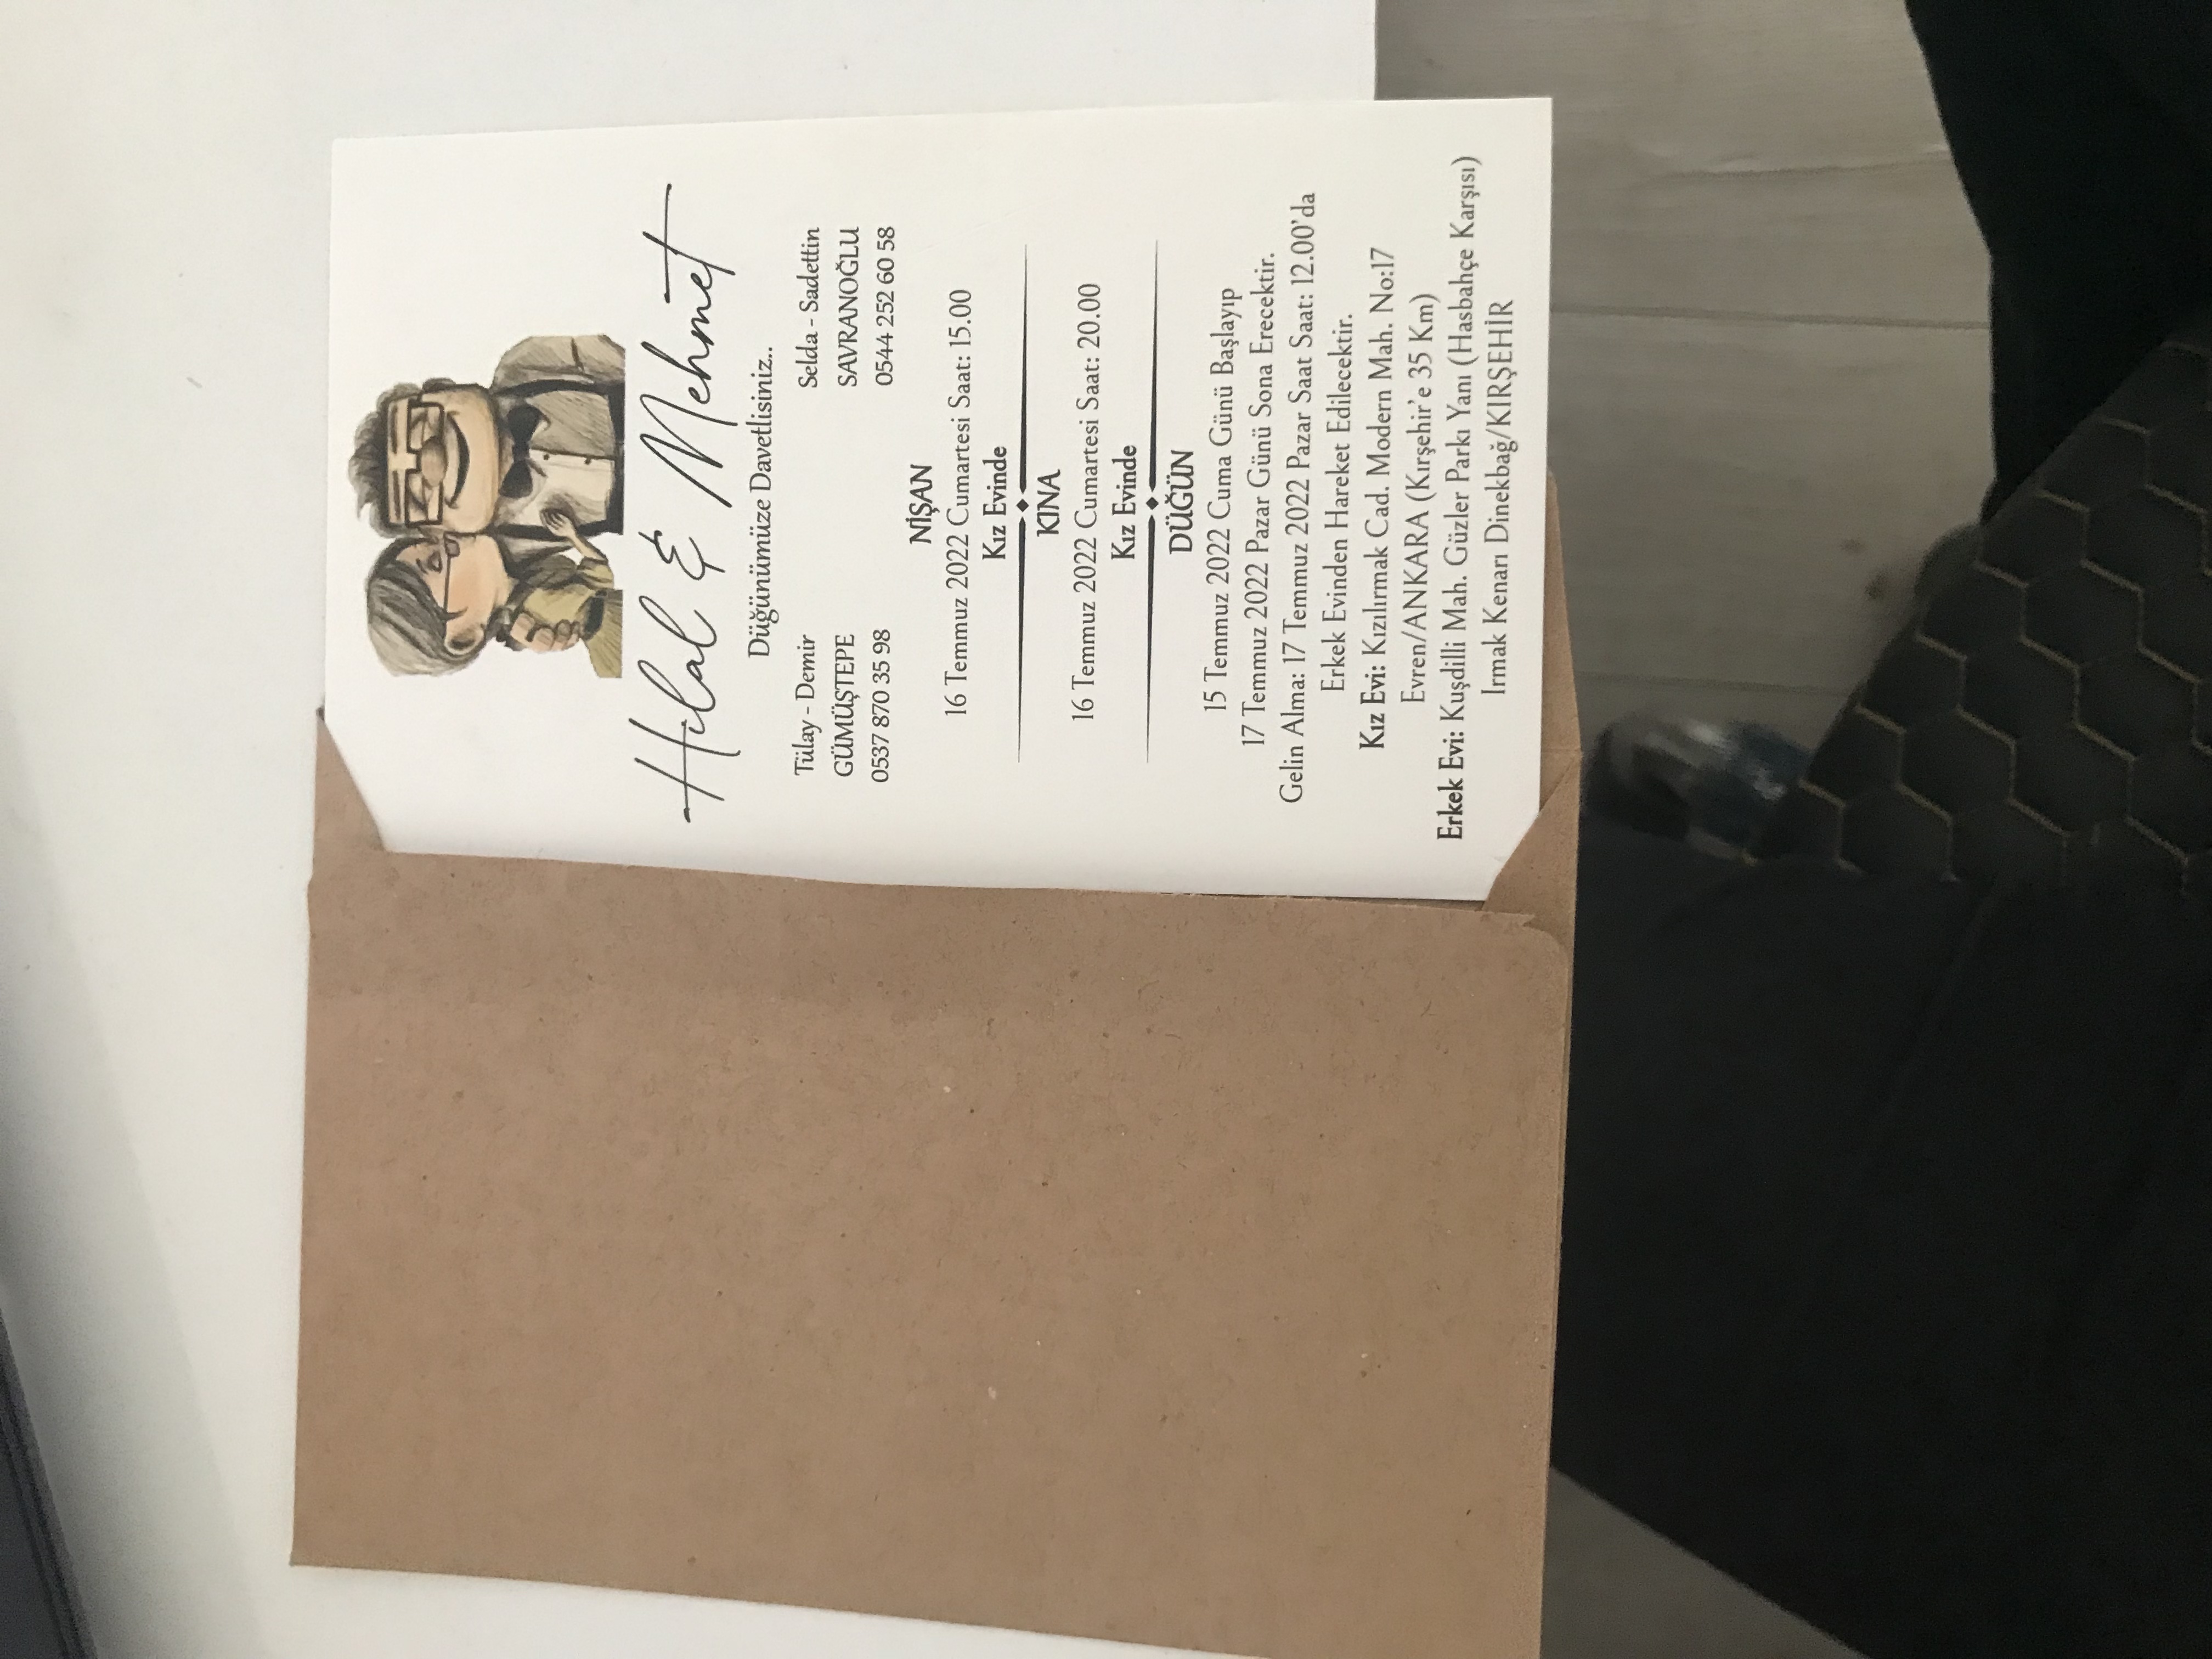 Hilal & Mehmet
Düğünümüze Davetlisiniz..
Tülay - Demir
GÜMÜŞTEPE
0537 870 35 98
Selda - Sadettin
SAVRANOĞLU
0544 252 60 58
NİŞAN
16 Temmuz 2022 Cumartesi Saat: 15.00
Kız Evinde
KINA
16 Temmuz 2022 Cumartesi Saat: 20.00
Kız Evinde
DÜĞÜN
15 Temmuz 2022 Cuma Günü Başlayıp
17 Temmuz 2022 Pazar Günü Sona Erecektir.
Gelin Alma: 17 Temmuz 2022 Pazar Saat Saat: 12.00'da
Erkek Evinden Hareket Edilecektir.
Kız Evi: Kızılırmak Cad. Modern Mah. No:17
Evren/ANKARA (Kırşehir'e 35 Km)
Erkek Evi: Kuşdilli Mah. Güzler Parkı Yanı (Hasbahçe Karşısı)
Irmak Kenarı Dinekbağ/KIRŞEHİR